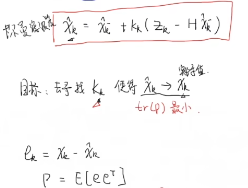 x̂ₖ = x̂ₖ⁻ + kₖ ( zₖ - H x̂ₖ⁻ )
目标: 去寻找 kₖ 使得 x̂ₖ → xₖ 实际值
tr(P) 最小
eₖ = xₖ - x̂ₖ
P = E[e eᵀ]